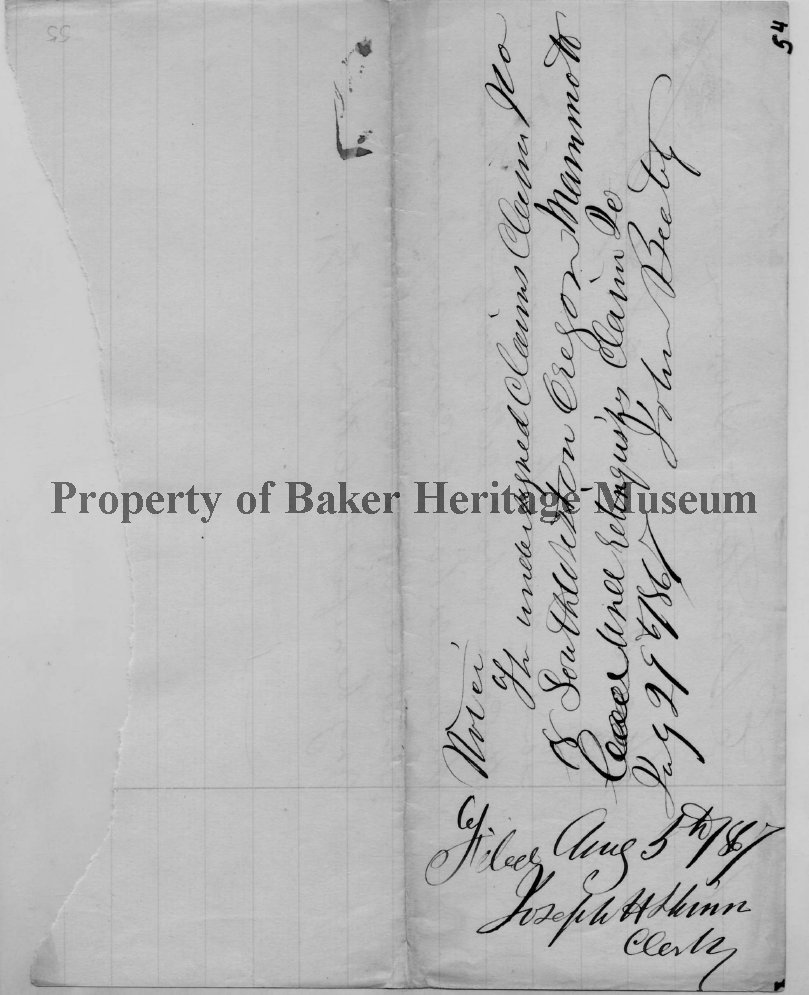 54
Notice
The undersigned Claims Claim No
8 South Western Oregon Mammoth
Lead and relinquishes Claim 20
July 29th/867 John Beaty
Filed Aug 5th/867
Joseph H Shinn
Clerk
Property of Baker Heritage Museum
55